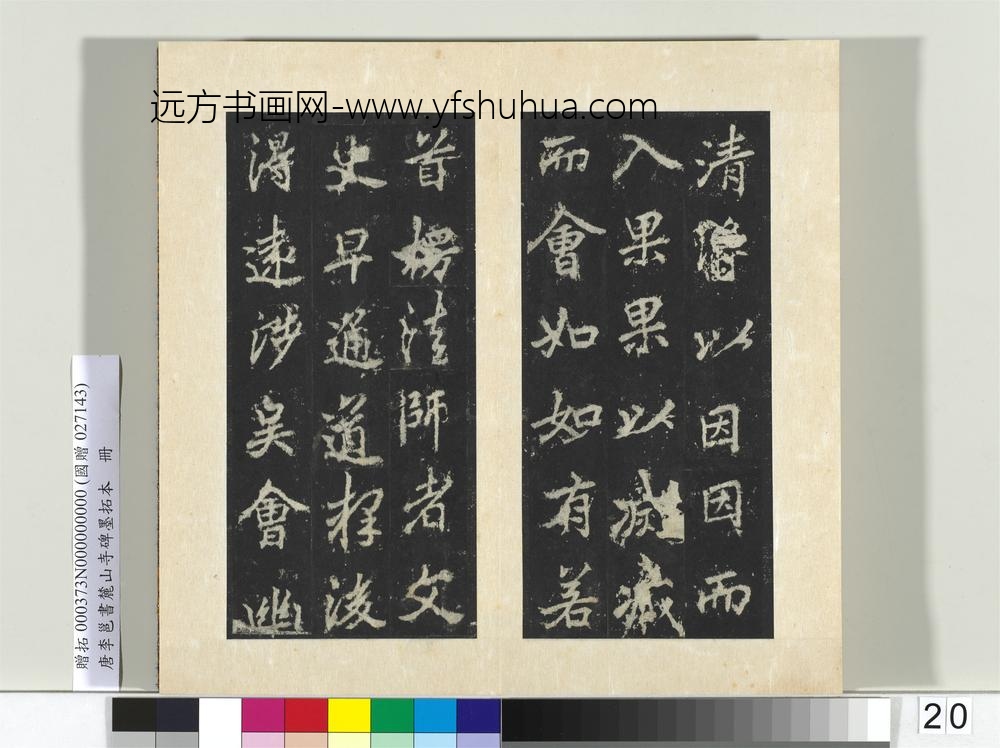 远方书画网-www.yfshuhua.com
清以因因而
入果果以滅滅
而會如如有若
首楞法師者文
史早通道擇後
得遠涉矣會幽
贈拓 000373N000000000 (國贈 027143)
唐李邕書麓山寺碑墨拓本 冊
20